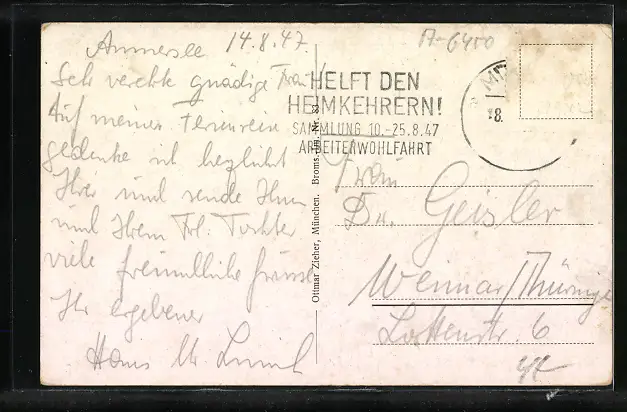 Ammersee 14.8.47.
Sehr verehrte gnädige Frau!
Auf meiner Ferienreise
gedenke ich herzlichst
Ihrer und sende Ihnen
und Ihrem Frl. Tochter
viele freundliche Grüsse
Ihr ergebener
Hans
Ottmar Zieher, München. Broms.
A-6400
HELFT DEN
HEIMKEHRERN!
SAMMLUNG 10.-25.8.47
ARBEITERWOHLFAHRT
8.
Frau
Dr. Geisler
Weimar/Thüringe
Lottenstr. 6